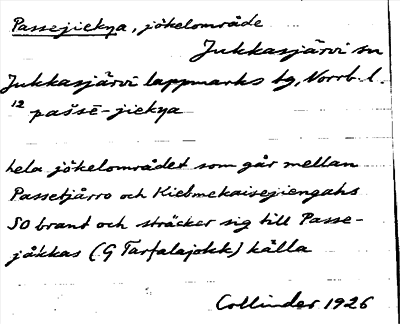 Passejiekna, jökelområde
Jukkasjärvi sn
Jukkasjärvi lappmarks tg, Norrb. l.
12 paššē-jiekŋa
hela jökelområdet som går mellan
Passetjårro och Kiebmekaisejiengahs
SO brant och sträcker sig till Passe-
jåkkas (G Tarfalajokk) källa
Collinder 1926